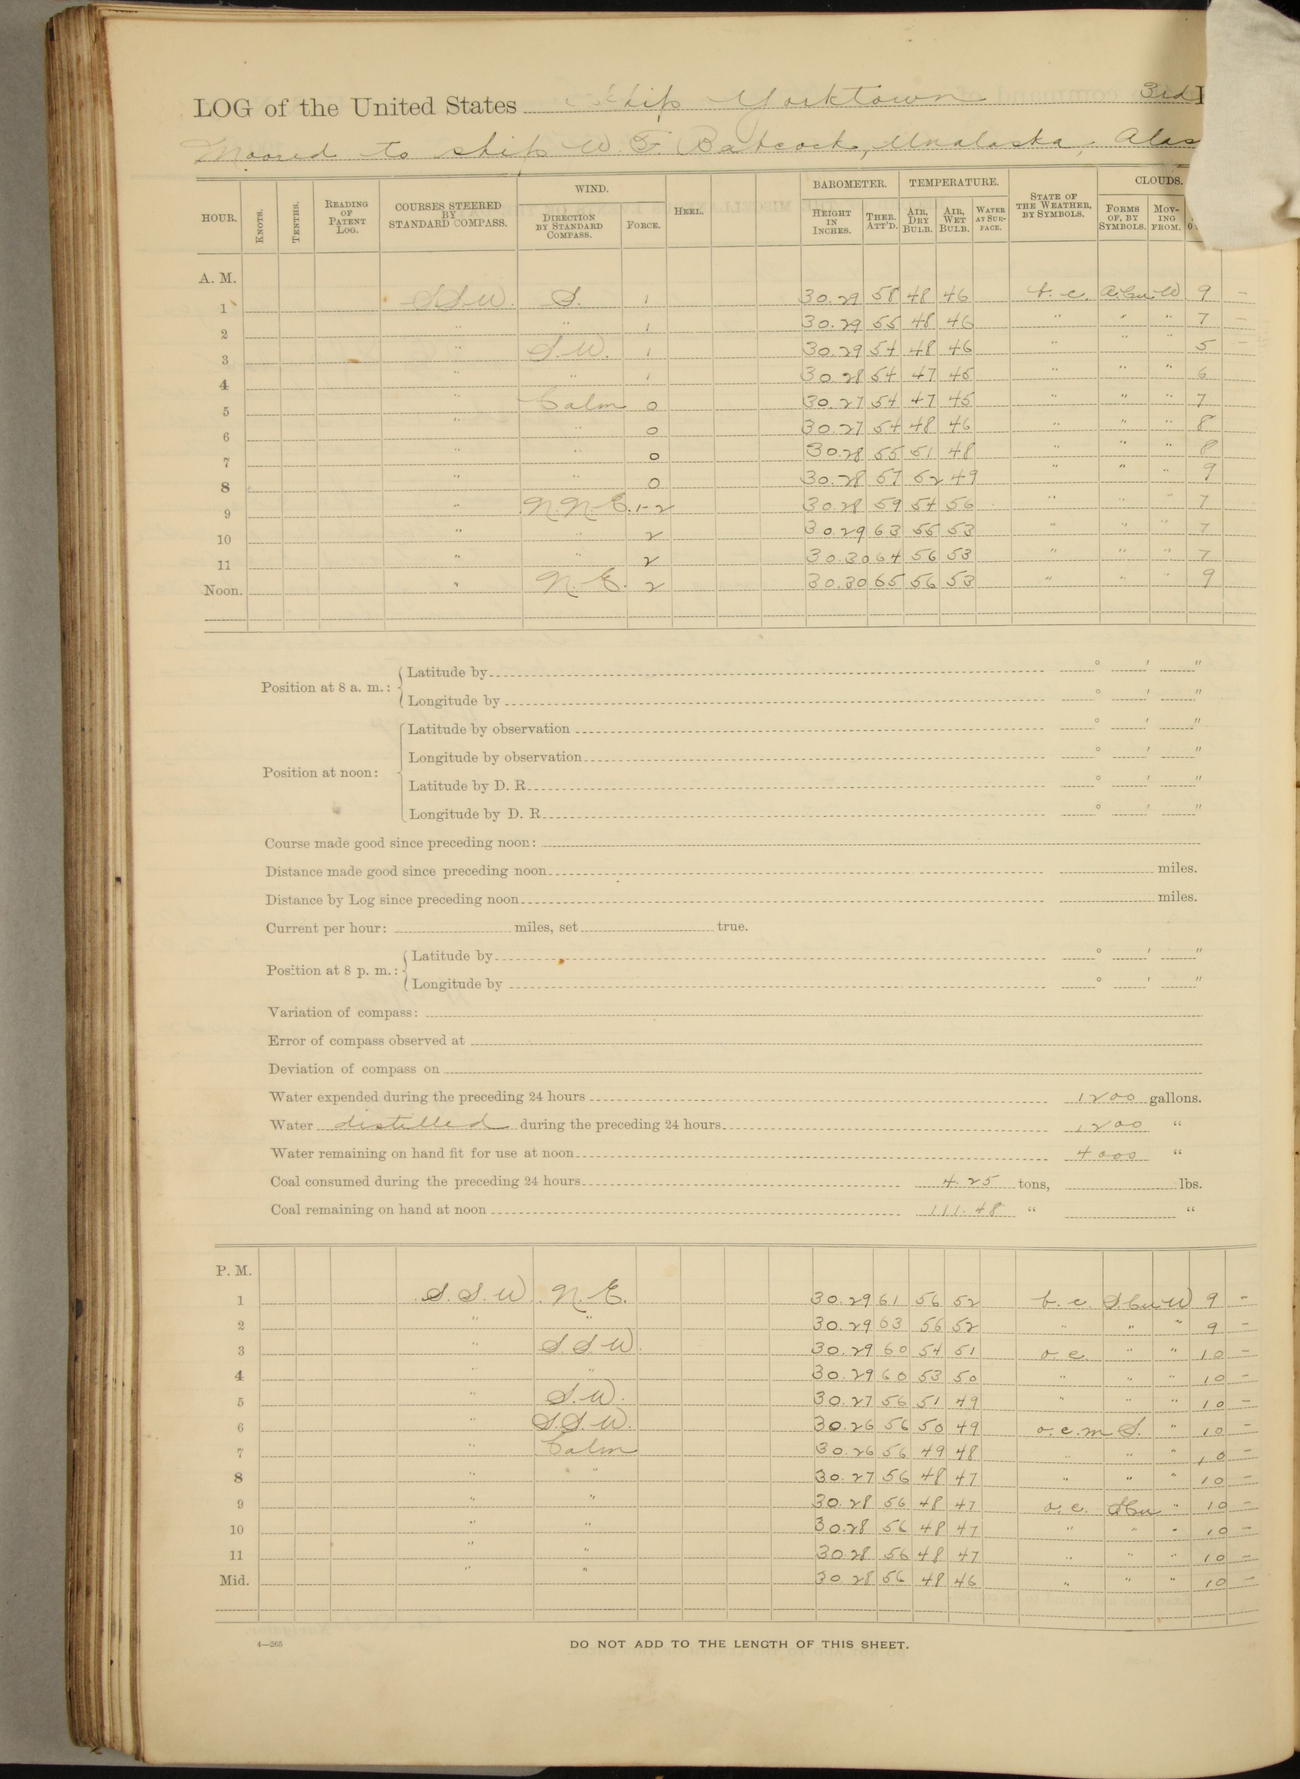 LOG of the United States Ship Yorktown 3rd
Moored to ship W. F. Babcock, Unalaska, Alas
HOUR. KNOTS. TENTHS. READING OF PATENT LOG. COURSES STEERED BY STANDARD COMPASS. WIND. DIRECTION BY STANDARD COMPASS. FORCE. HEEL. BAROMETER. HEIGHT IN INCHES. THER. ATT'D. TEMPERATURE. AIR, DRY BULB. AIR, WET BULB. WATER AT SURFACE. STATE OF THE WEATHER, BY SYMBOLS. CLOUDS. FORMS OF, BY SYMBOLS. MOVING FROM.
A. M.
1 S.S.W. S. 1 30.29 58 48 46 b. c. W 9 -
2 " " 1 30.29 55 48 46 " " " 7 -
3 " S.W. 1 30.29 54 48 46 " " " 5 -
4 " " 1 30.28 54 47 45 " " " 6
5 " Calm 0 30.27 54 47 45 " " " 7
6 " " 0 30.27 54 48 46 " " " 8
7 " " 0 30.28 55 51 48 " " " 8
8 " " 0 30.28 57 52 49 " " " 9
9 " N.N.E. 1-2 30.28 59 54 56 " " " 7
10 " " 2 30.29 63 55 53 " " " 7
11 " " 2 30.30 64 56 53 " " " 7
Noon. " N.E. 2 30.30 65 56 53 " " " 9
Position at 8 a. m.: Latitude by ° ' "
Longitude by ° ' "
Position at noon: Latitude by observation ° ' "
Longitude by observation ° ' "
Latitude by D. R. ° ' "
Longitude by D. R. ° ' "
Course made good since preceding noon:
Distance made good since preceding noon miles.
Distance by Log since preceding noon miles.
Current per hour: miles, set true.
Position at 8 p. m.: Latitude by ° ' "
Longitude by ° ' "
Variation of compass:
Error of compass observed at
Deviation of compass on
Water expended during the preceding 24 hours 1200 gallons.
Water distilled during the preceding 24 hours 1200 "
Water remaining on hand fit for use at noon 4000 "
Coal consumed during the preceding 24 hours 4.25 tons, lbs.
Coal remaining on hand at noon 111.48 " "
P. M.
1 S.S.W. N.E. 30.29 61 56 52 b. c. S.Cu W 9 -
2 " " 30.29 63 56 52 " " " 9 -
3 " S.S.W. 30.29 60 54 51 o. c. " " 10 -
4 " " 30.29 60 53 50 " " " 10 -
5 " S.W. 30.27 56 51 49 " " " 10 -
6 " S.S.W. 30.26 56 50 49 o.c.m S. " 10 -
7 " Calm 30.26 56 49 48 " " " 10 -
8 " " 30.27 56 48 47 " " " 10 -
9 " " 30.28 56 48 47 o. c. S.Cu " 10 -
10 " " 30.28 56 48 47 " " " 10 -
11 " " 30.28 56 48 47 " " " 10 -
Mid. " " 30.28 56 48 46 " " " 10 -
4—265 DO NOT ADD TO THE LENGTH OF THIS SHEET.